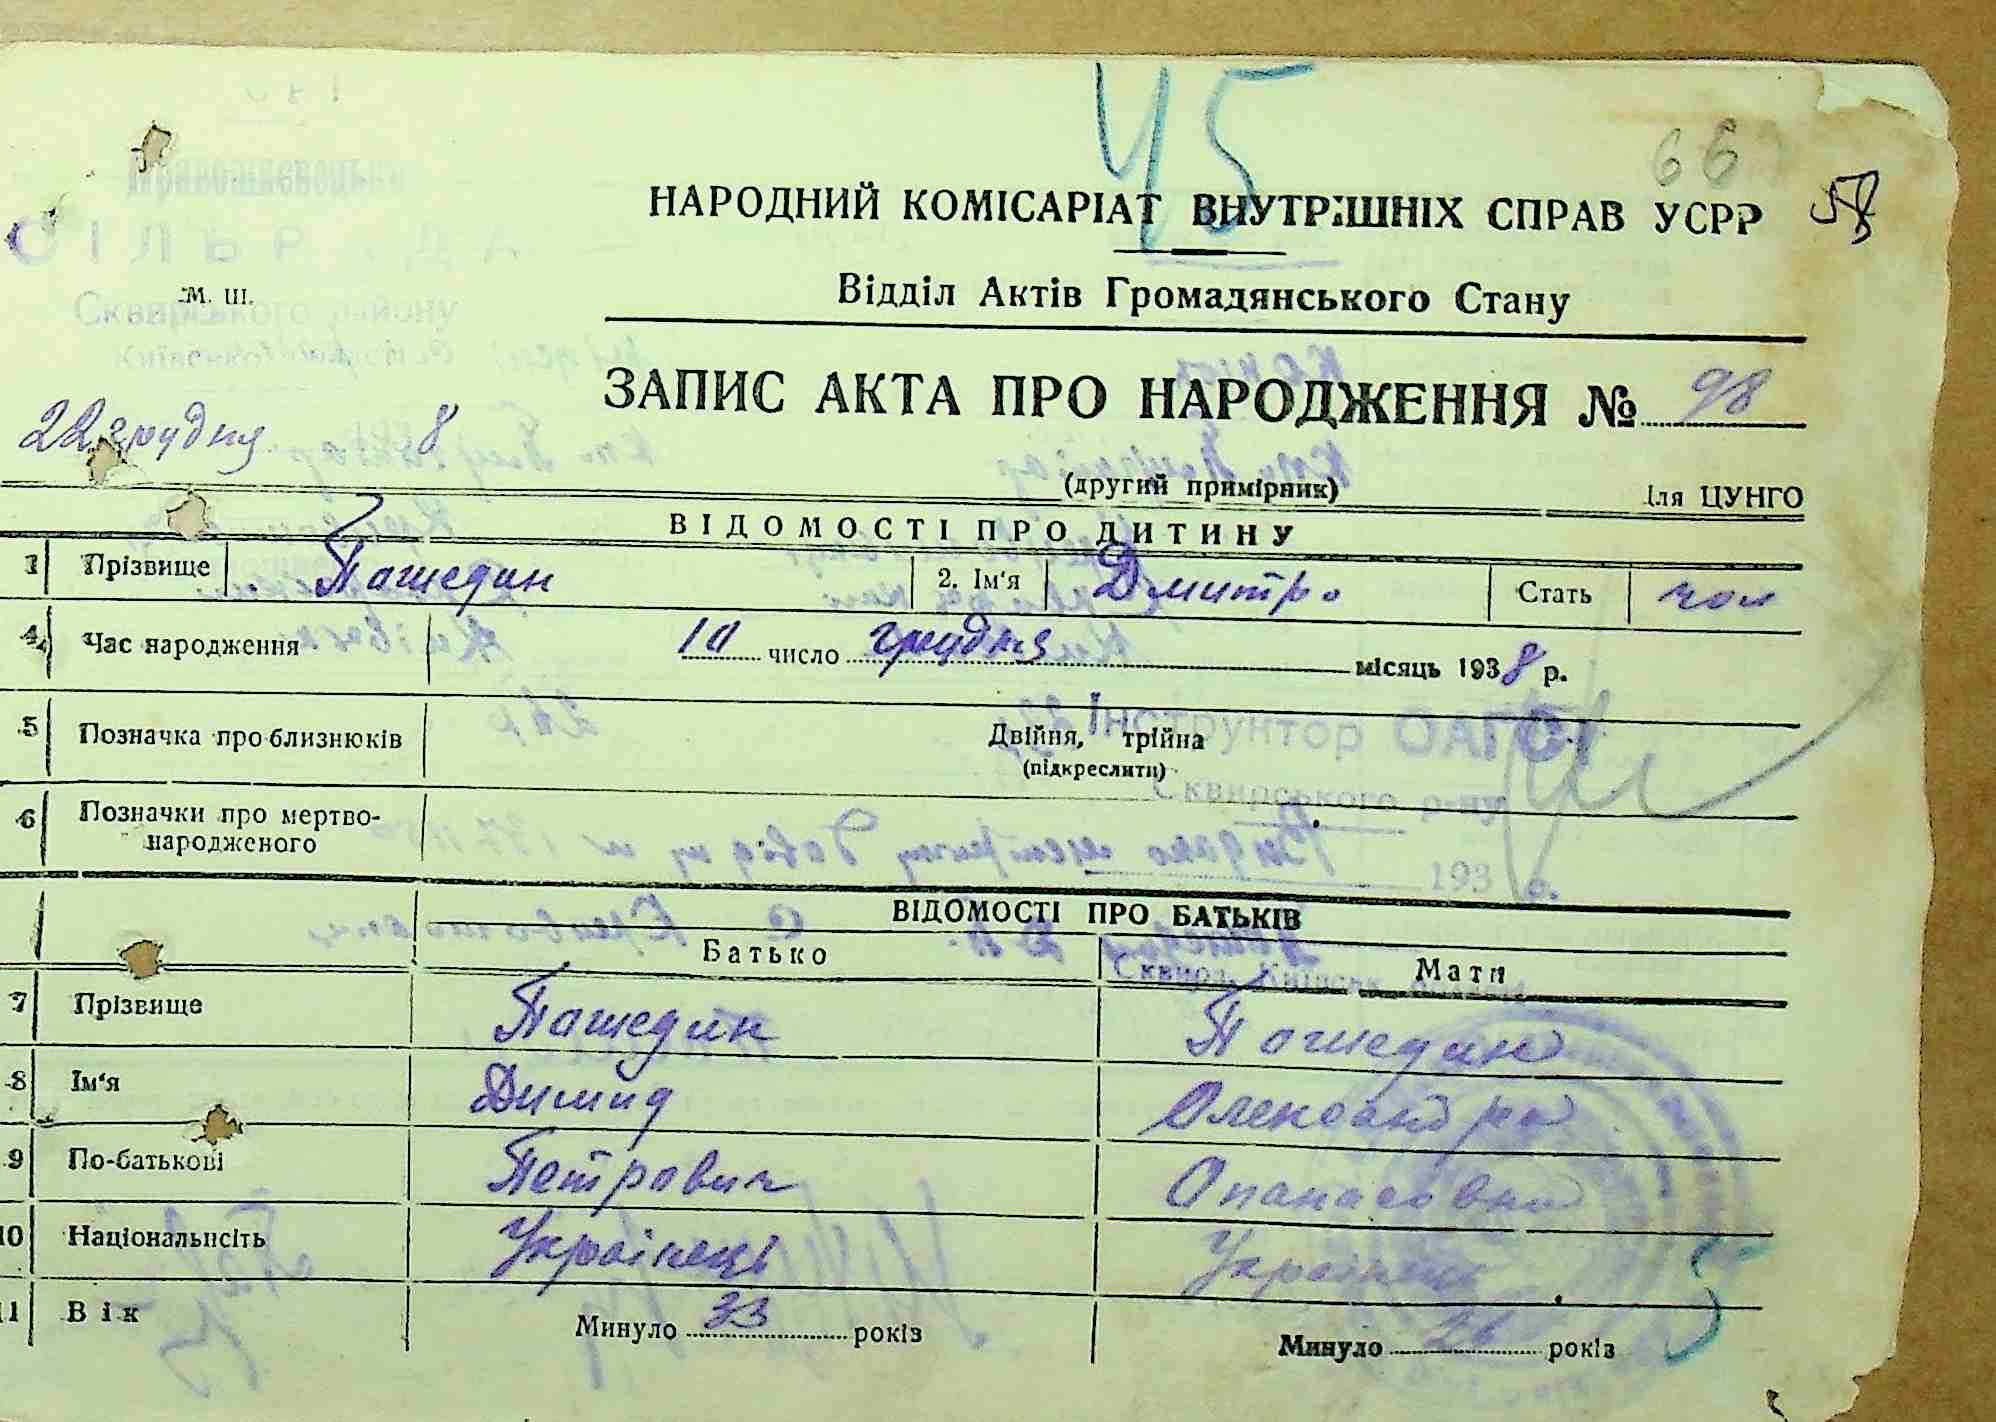 45
66
58
НАРОДНИЙ КОМІСАРІАТ ВНУТРІШНІХ СПРАВ УСРР
Відділ Актів Громадянського Стану
СІЛЬРАДА
М. Ш.
Сквирського району
Київської області
ЗАПИС АКТА ПРО НАРОДЖЕННЯ № 98
22 грудня 8
(другий примірник) Для ЦУНГО
ВІДОМОСТІ ПРО ДИТИНУ
1 Прізвище Пашедин 2. Ім'я Дмитро Стать чол
4 Час народження 10 число грудня місяць 1938 р.
5 Позначка про близнюків Двійня, трійня
(підкреслити)
Інструктор ОАГС
Сквирського р-ну
6 Позначки про мертво-
народженого
193 р.
ВІДОМОСТІ ПРО БАТЬКІВ
Батько Мати
7 Прізвище Пашедин Пашедин
8 Ім'я Димид Олександра
9 По-батькові Петрович Опанасовна
10 Національність Українець Українець
11 Вік Минуло 33 років Минуло 26 років
5